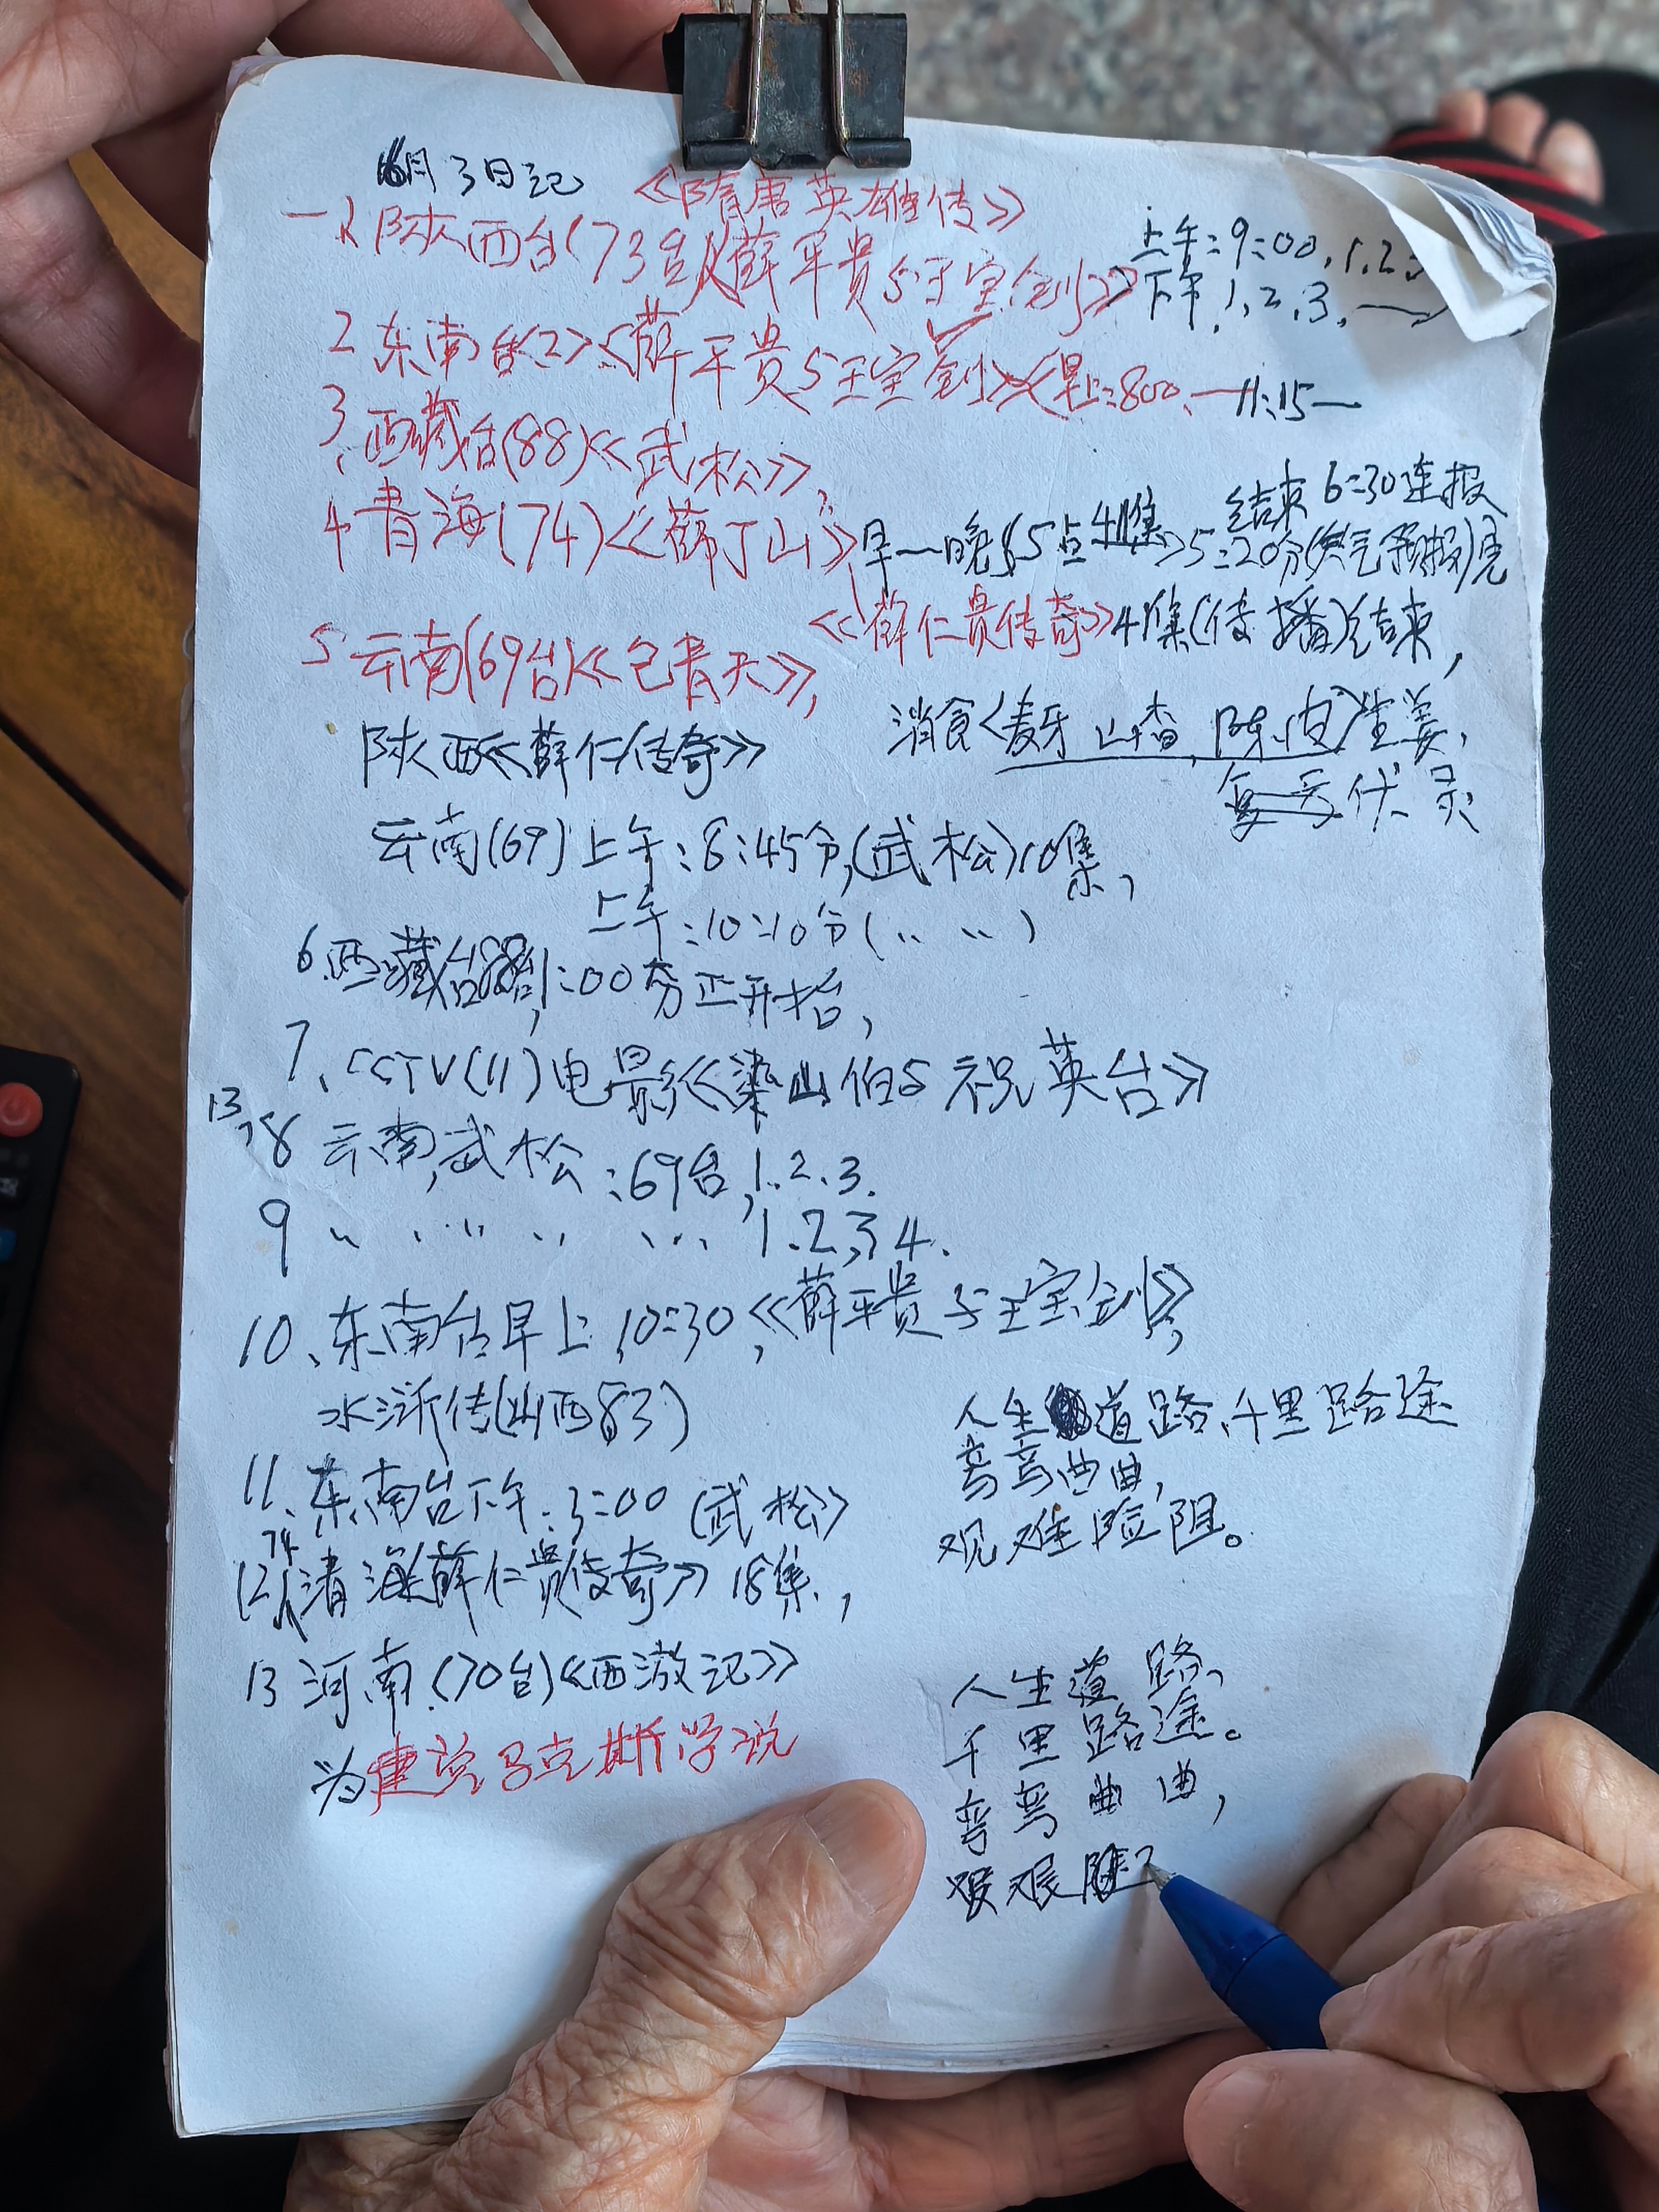 6月3日记
《隋唐英雄传》
一、陕西台(73台)《薛平贵与王宝钏》上午:9:00.1.2.3
下午.1.2.3.
2 东南台<2>《薛平贵与王宝钏》<早上:800.—11:15—
3、西藏台(88)《武松》,
结束6:30连报
4 青海(74)《薛丁山》早—晚 5点41集 5:20分(天气预报)完
《薛仁贵传奇》41集(传播)结束,
5 云南(69台)《包青天》,
消食<麦牙 山查, 陈皮>生姜,
陕西《薛仁传奇》
伏灵
云南(69)上午:8:45分,(武松)10集,
上午:10:10分(〃 〃)
6.西藏台 1:00 正开始,
7、CCTV(11)电影《梁山伯与祝英台》
13,8 云南,武松:69台,1.2.3.
9 〃 〃 〃 〃 1.2,3 4.
10、东南台早上,10:30,《薛平贵与王宝钏》,
水浒传(山西83)
人生道路,千里路途
弯弯曲曲,
观难险阻。
11、东南台下午:3:00(武松>
74
12、清海《薛仁贵传奇》18集,
13 河南(70台)《西游记》
为建党马克斯学说
人生道路、
千里路途。
弯弯曲曲,
艰艰